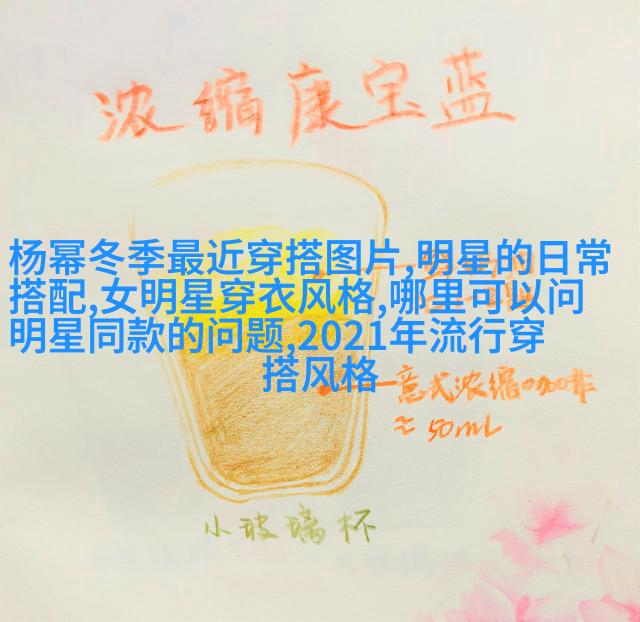 浓缩康宝蓝
杨幂冬季最近穿搭图片,明星的日常
搭配,女明星穿衣风格,哪里可以问
明星同款的问题,2021年流行穿
搭风格
意式浓缩咖啡
≈50mL
小玻璃杯